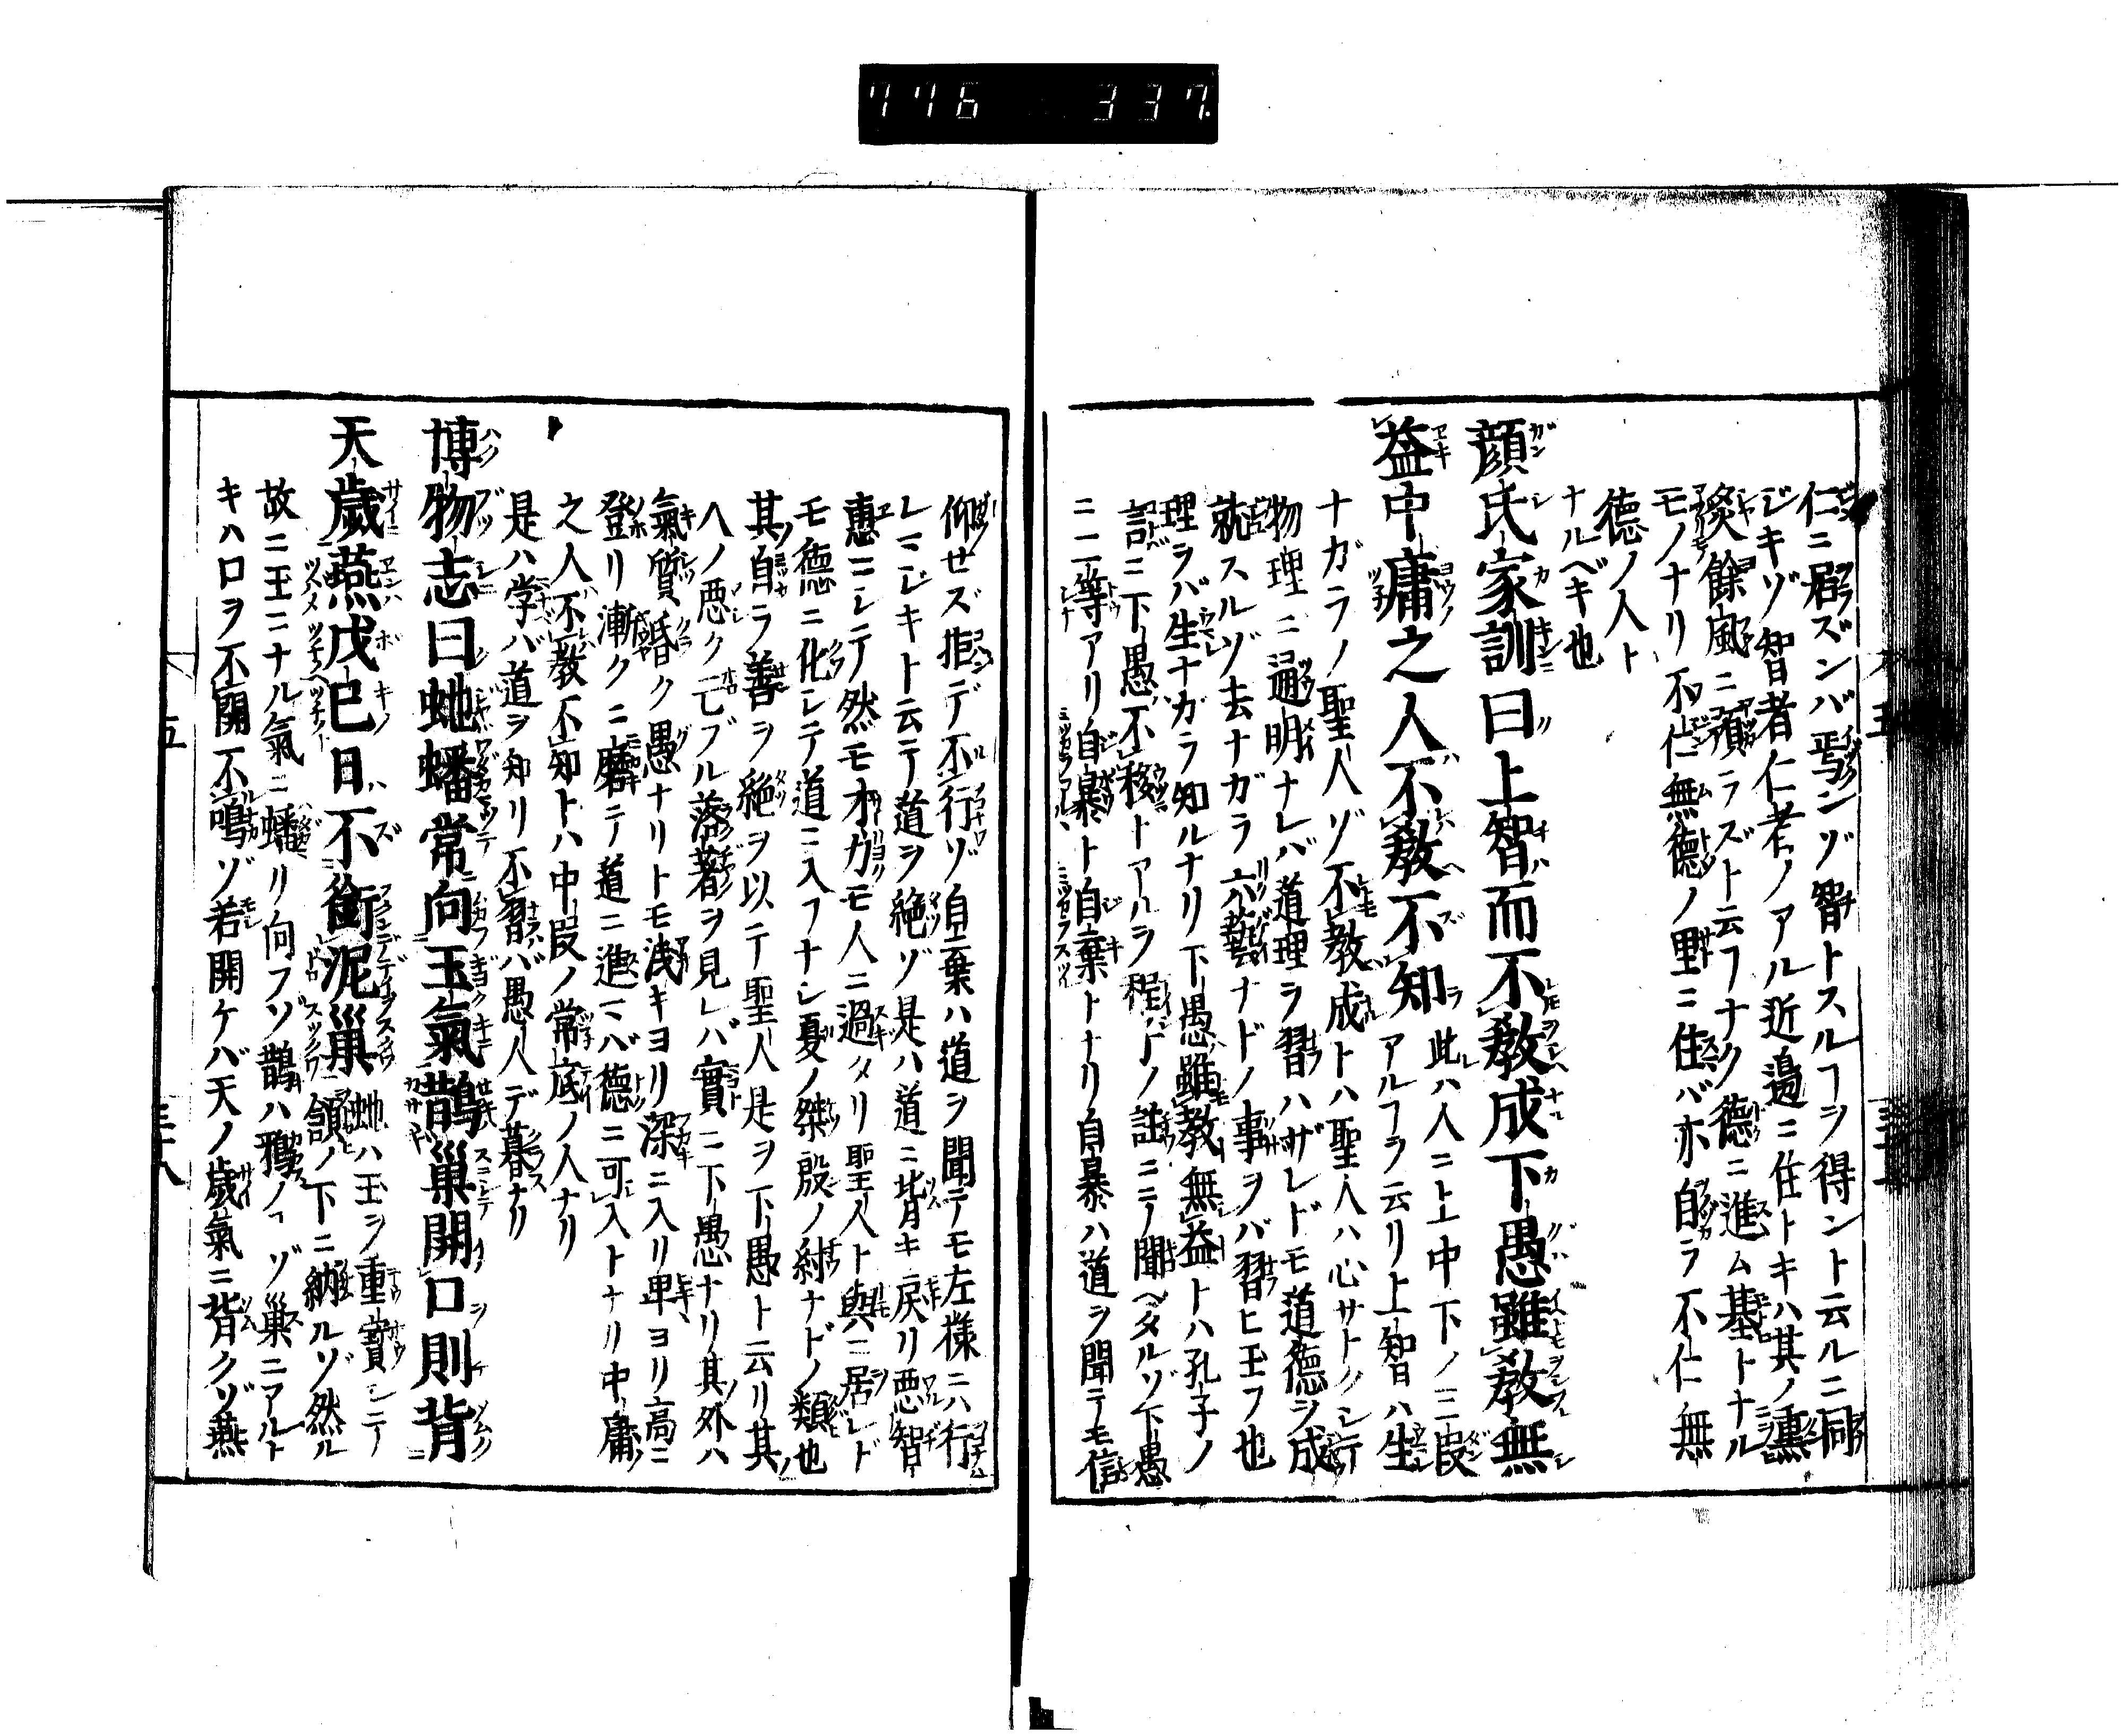 776 337
仁ニ居ズンバ焉ンゾ智トスルヿヲ得ント云ルニ同
ジキゾ智者仁者ノアル近邊ニ住トキハ其ノ薰
餘風ニ預ラズト云フナク德ニ進ム基トナル
モノナリ不仁無德ノ里ニ住バ亦自ラ不仁無
德ノ人ト
ナルベキ也
顔氏家訓曰上智而不敎成下愚雖敎無
益中庸之人不敎不知此ハ人ニ上中下ノ三段
アルヿヲ云リ上智ハ生
ナガラノ聖人ゾ不教成トハ聖人ハ心サトクシテ
物理ニ通明ナレバ道理ヲ習ハザレドモ道德ヲ成
就スルゾ去ナガラ六藝ナドノ事ヲバ習ヒ玉フ也
理ヲバ生ナガラ知ルナリ下愚雖教無益トハ孔子ノ
語ニ下愚不移トアルヲ程子ノ註ニテ聞ヘタルゾ下愚
ニ二等アリ自暴ト自棄トナリ自暴ハ道ヲ聞テモ信
仰セズ拒デ不行ゾ自棄ハ道ヲ聞テモ左樣ニハ行
レマジキト云テ道ヲ絶ゾ是ハ道ニ背キ戻リ悪智
惠ニシテ然モ才力モ人ニ過タリ聖人ト與ニ居レド
モ德ニ化シテ道ニ入フナシ夏ノ桀殷ノ紂ナドノ類也
其自ラ善ヲ絶ヲ以テ聖人是ヲ下愚ト云リ其
ヘノ悪ク亡ブル落著ヲ見レバ實ニ下愚ナリ其外ハ
氣質昏ク愚ナリトモ淺キヨリ深ニ入リ卑ヨリ高ニ
登リ漸クニ磨テ道ニ進マバ德ニ可入トナリ中庸
之人不教不知トハ中段ノ常底ノ人ナリ
是ハ学バ道ヲ知リ不習バ愚人デ暮ナリ
博物志曰虵蟠常向王氣鵲巢開口則背
天歲燕戊巳日不銜泥巢虵ハ王ヲ重寶シテ
頷ノ下ニ納ルゾ然ル
故ニ王ニナル氣ニ蟠リ向フゾ鵲ハ鴉ノヿゾ巢ニアルト
キハ口ヲ不開不鳴ゾ若開ケバ天ノ歲氣ニ背クゾ燕
五
三十八